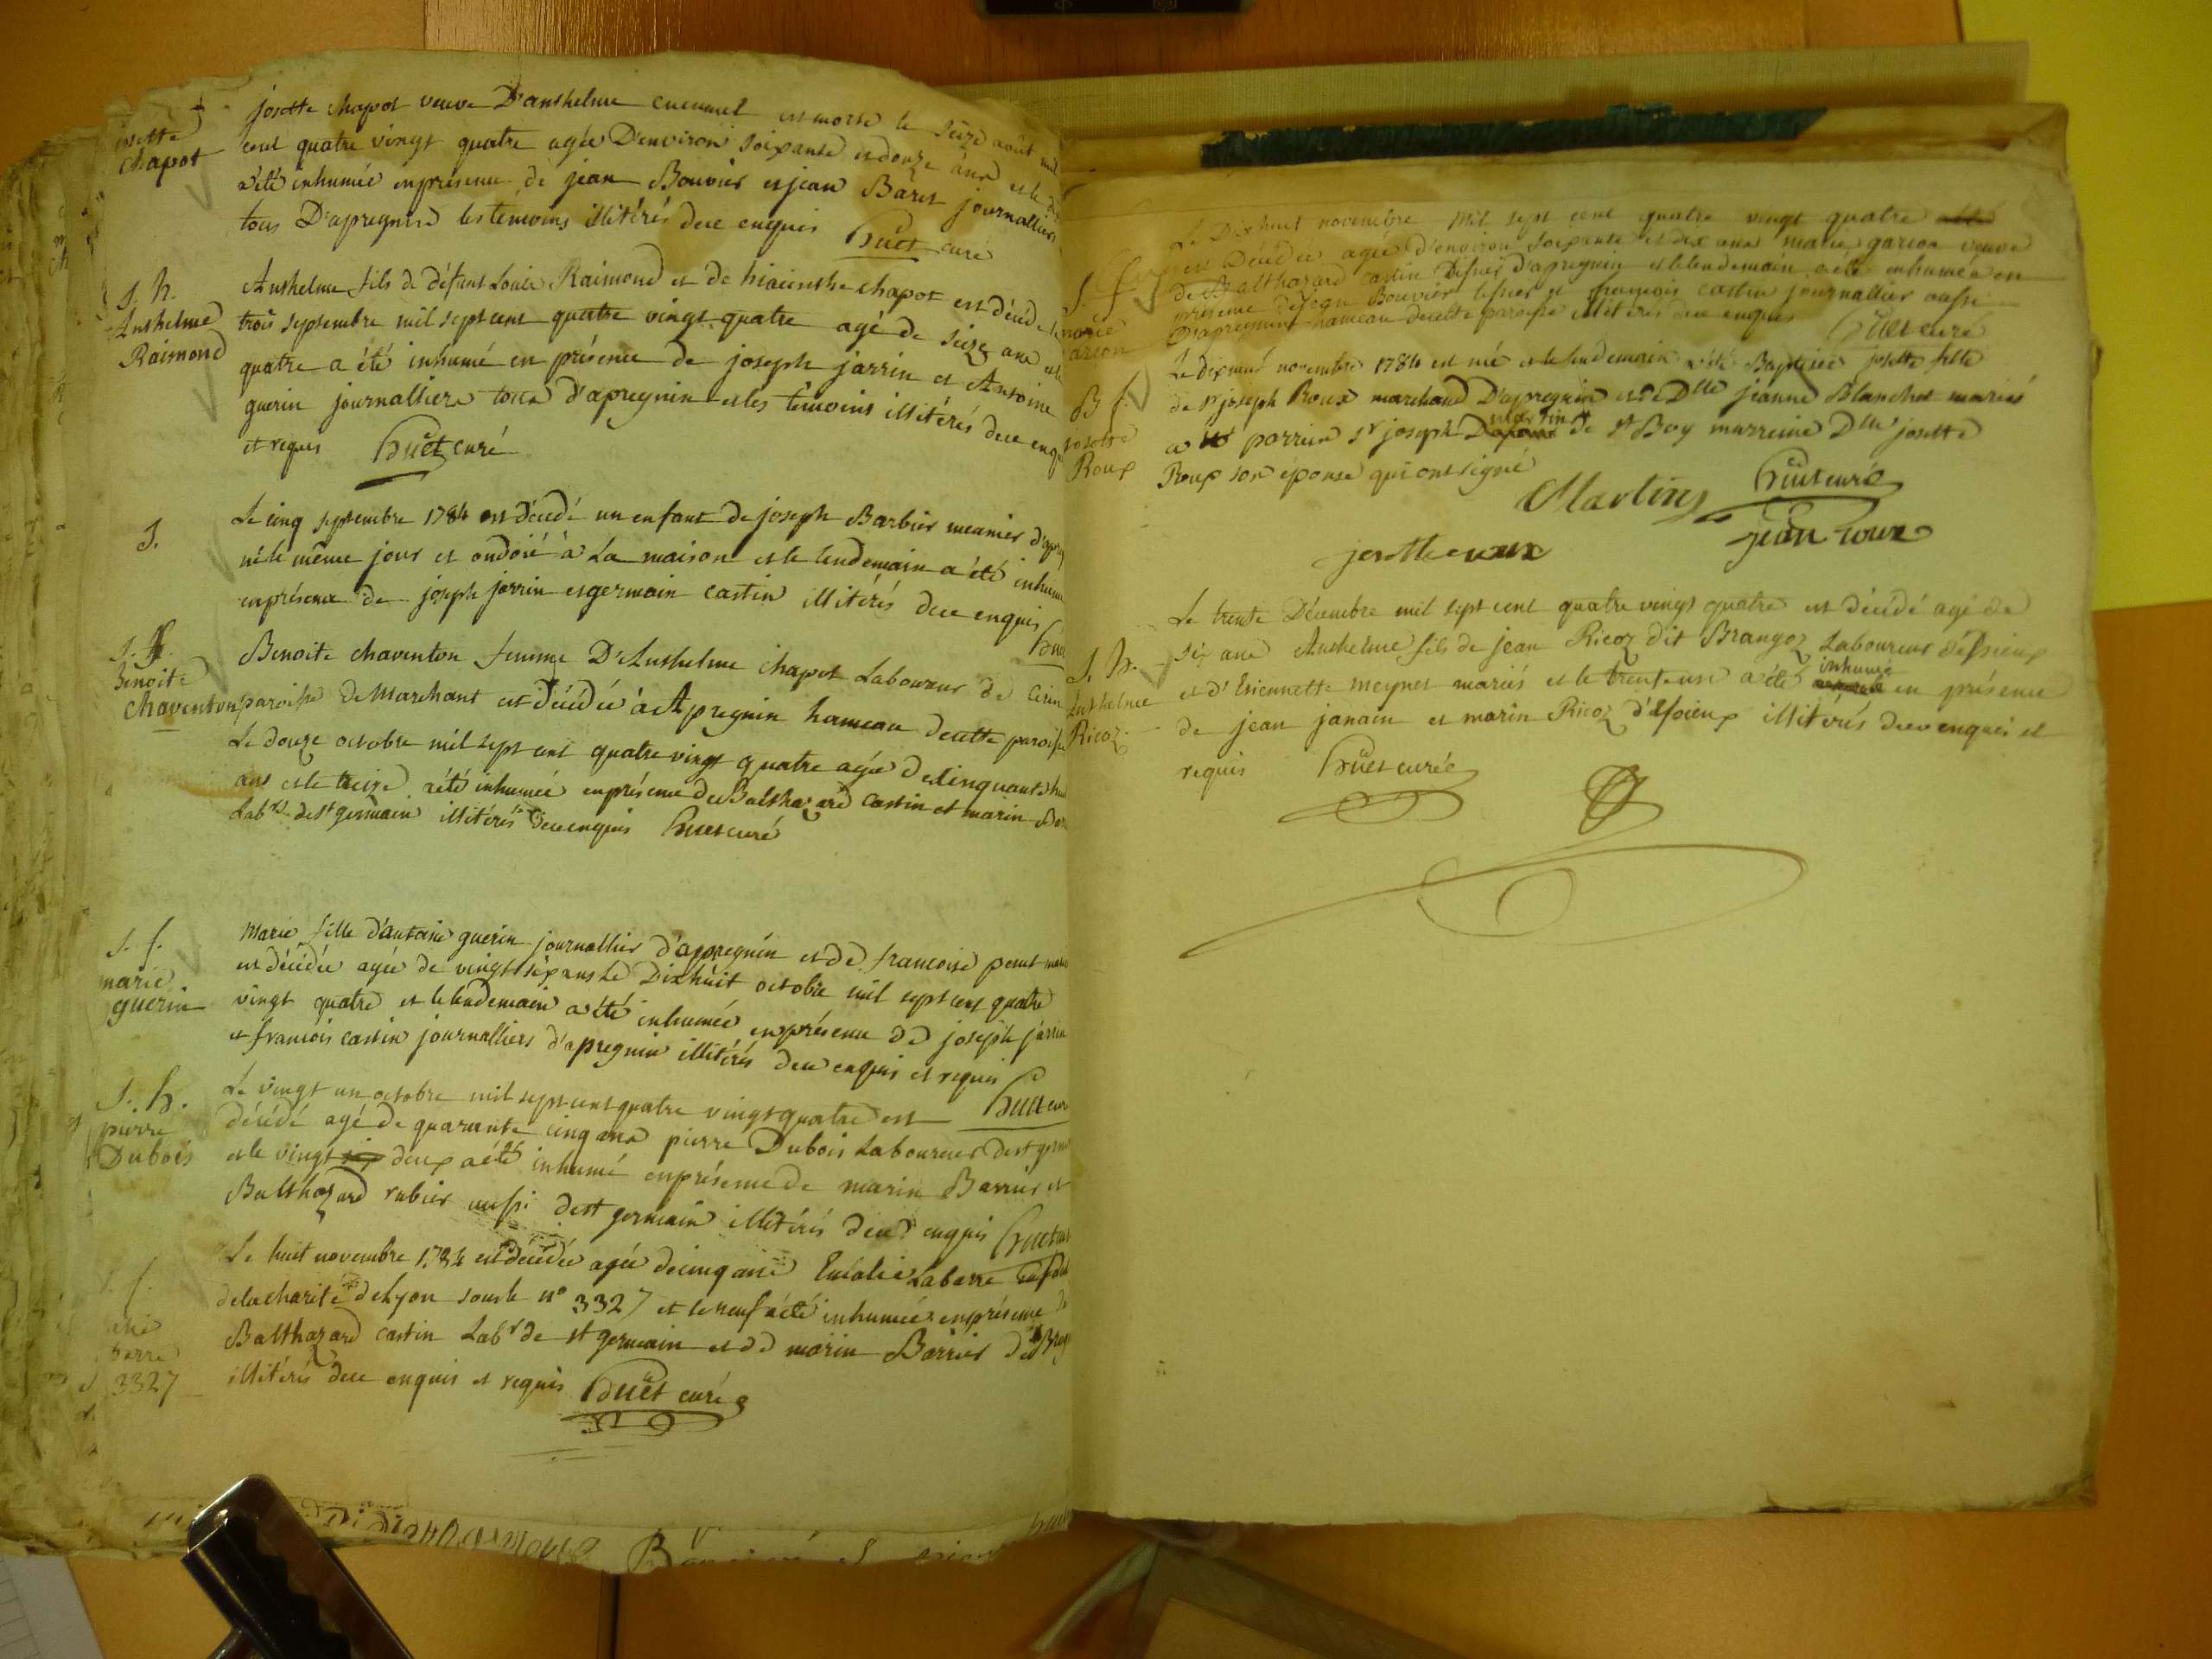 josette
chapot
josette chapot veuve D'anthelme cucumel est morte le seize août mil
cent quatre vingt quatre agée D'environ soixante et douze ans et le
a été inhumée en présence de jean Bouvier et jean Baret journalliers
tous D'apregnin les temoins illitérés de ce enquis huet curé
S. h.
Anthelme
Raimond
Anthelme fils de défunt Louis Raimond et de hiacinthe chapot est décédé le
trois septembre mil sept cent quatre vingt quatre agé de seize ans et le
quatre a été inhumé en présence de joseph jarrin et Antoine
guerin journalliers tous d'apregnin et les temoins illitérés de ce enquis
et requis huet curé
S.
Le cinq septembre 1784 est décédé un enfant de joseph Barbier meunier d'apreg
né le même jour et ondoié à La maison et le lendemain a été inhumé
en présence de joseph jarrin et germain castin illitérés de ce enquis
huet
S. f.
Benoite
chaventon
Benoite chaventon femme D'Anthelme chapot Laboureur de Cerin
paroisse de Marchant est décédée à Apregnin hameau de cette paroisse
Le douze octobre mil sept cent quatre vingt quatre agée de cinquante huit
ans et le treize a été inhumée en présence de Balthazard castin et marin Bar
Labrs de st germain illitérés de ce enquis huet curé
S. f.
marie
guerin
Marie fille d'antoine guerin journallier d'appregnin et de francoise penet mariés
est décédée agée de vingt six ans Le Dixhuit octobre mil sept cent quatre
vingt quatre et le lendemain a été inhumée en présence de joseph jarrin
et francois castin journalliers d'apregnin illitérés de ce enquis et requis
huet curé
S. h.
pierre
Dubois
Le vingt un octobre mil sept cent quatre vingt quatre est
décédé agé de quarante cinq ans pierre Dubois Laboureur de st germ
et le vingt deux a été inhumé en présence de marin Barrier et
Balthazard rubier aussi de st germain illitérés de ce enquis huet curé
S. f.
barre
3327
Le huit novembre 1784 est décédée agée de cinq ans Eulalie Labarre Enfant
de la charité de Lyon sous le n° 3327 et le neuf a été inhumée en présence de
Balthazard castin Labr de st germain et de marin Barrier de
illitérés de ce enquis et requis huet curé
S. f.
marie
garçon
Le Dixhuit novembre Mil sept cent quatre vingt quatre
est Décédée agée d'environ soixante et dix ans marie garcon veuve
de Balthazard castin Tissier d'apregnin et le lendemain a été inhumée en
présence de jean Bouvier tissier et francois castin journallier aussi
D'apregnin hameau de cette paroisse illitérés de ce enquis huet curé
B f.
josette
Roux
Le dixneuf novembre 1784 est née et le lendemain a été Baptisée josette fille
de sr joseph Roux marchand D'apregnin et de Dlle jeanne Blanchet mariés
a parrain sr joseph martin de st Boy marreine Dlle josette
Roux son épouse qui ont signé
Martin huet curé
josette roux jean roux
S. h.
Anthelme
Ricoz
Le trente Décembre mil sept cent quatre vingt quatre est décédé agé de
six ans Anthelme fils de jean Ricoz dit Brangoz Laboureur d'Essieux
et d'Etiennette meynet mariés et le trente un a été inhumé en présence
de jean janain et marin Ricoz d'Essieux illitérés de ce enquis et
requis huet curé